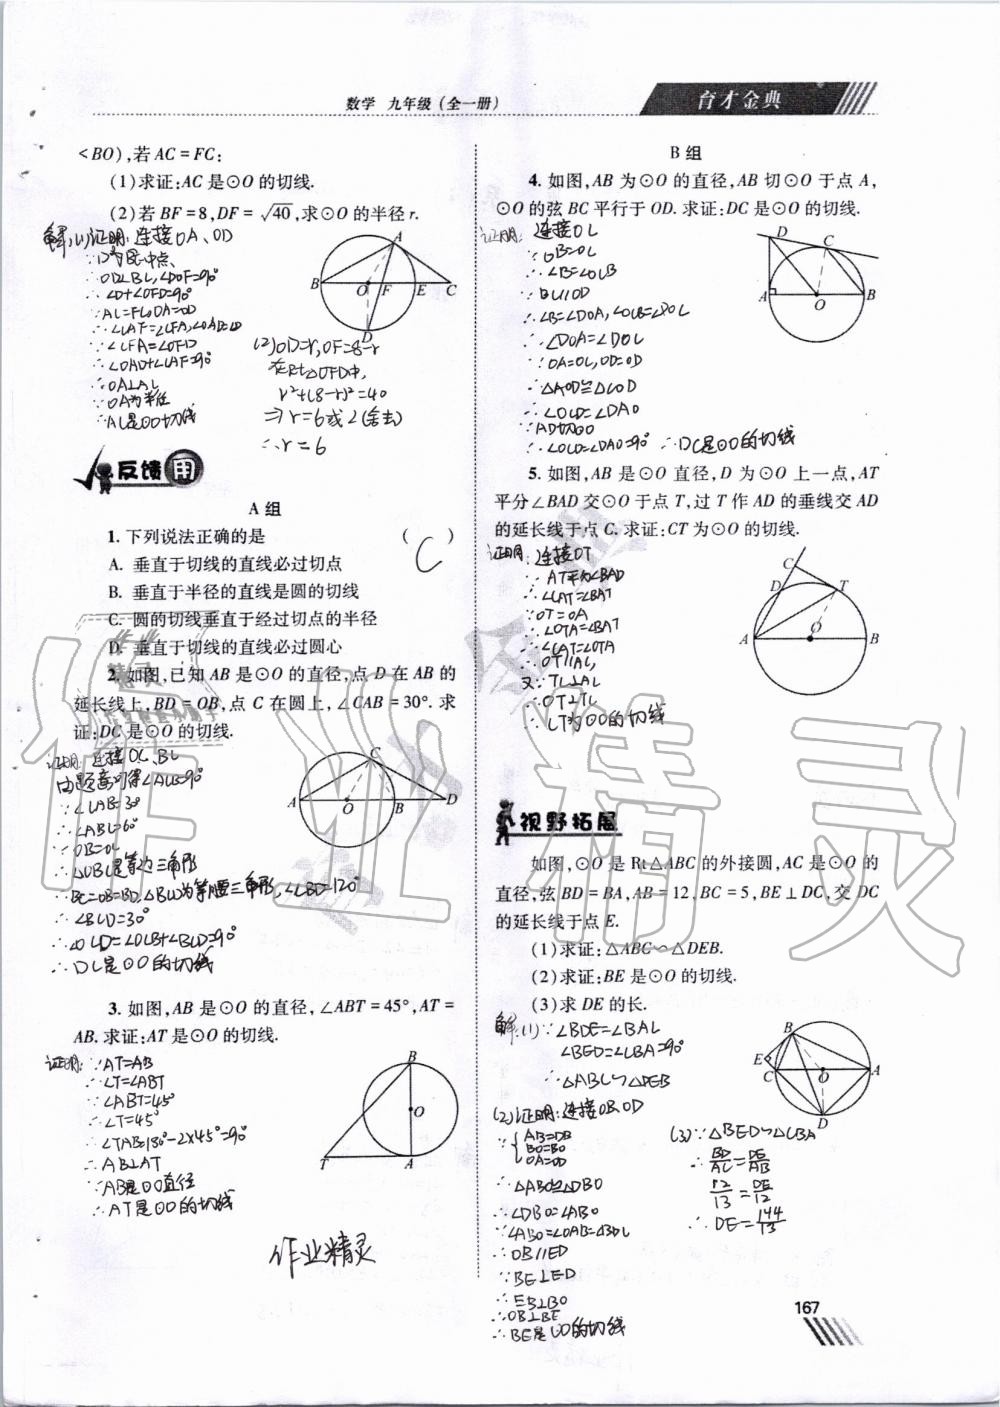 数学 九年级(全一册)
育才金典
<BO),若 AC = FC:
(1)求证:AC 是⊙O 的切线.
(2)若 BF = 8,DF = √40,求⊙O 的半径 r.
解:(1)证明:连接OA、OD
∴∠D+∠OFD=90°
∴OA⊥AC
∵OA为半径
∴AC是⊙O切线
A
B
O
F
E
C
D
(2)OD=r,OF=8-r
在Rt△OFD中,
r²+(8-r)²=40
⇒r=6或2(舍去)
∴r=6
反馈用
A 组
1. 下列说法正确的是 ( C )
A. 垂直于切线的直线必过切点
B. 垂直于半径的直线是圆的切线
C. 圆的切线垂直于经过切点的半径
D. 垂直于切线的直线必过圆心
2. 如图,已知 AB 是⊙O 的直径,点 D 在 AB 的
延长线上,BD = OB,点 C 在圆上,∠CAB = 30°. 求
证:DC 是⊙O 的切线.
证明:连接OC、BC
由题意可得∠ACB=90°
∵∠CAB=30°
∴∠ABC=60°
∵OB=OC
∴△OBC是等边三角形
∴BC=OB=BD,△BCD为等腰三角形,∠CBD=120°
∴∠BCD=30°
∴∠OCD=∠OCB+∠BCD=90°
∴DC是⊙O的切线
A
O
B
D
C
3. 如图,AB 是⊙O 的直径,∠ABT = 45°,AT =
AB. 求证:AT 是⊙O 的切线.
证明:∵AT=AB
∴∠T=∠ABT
∵∠ABT=45°
∴∠T=45°
∴∠TAB=180°-2×45°=90°
∴AB⊥AT
∵AB是⊙O直径
∴AT是⊙O的切线
B
O
T
A
作业精灵
B 组
4. 如图,AB 为⊙O 的直径,AB 切⊙O 于点 A,
⊙O 的弦 BC 平行于 OD. 求证:DC 是⊙O 的切线.
证明:连接OC
∵OB=OC
∴∠B=∠OCB
∵BC∥OD
∴∠B=∠DOA,∠OCB=∠DOC
∴∠DOA=∠DOC
∵OA=OC,OD=OD
∴△AOD≌△COD
∴∠OCD=∠DAO
∵AD切⊙O
∴∠OCD=∠DAO=90° ∴DC是⊙O的切线
D
C
A
O
B
5. 如图,AB 是⊙O 直径,D 为⊙O 上一点,AT
平分∠BAD 交⊙O 于点 T,过 T 作 AD 的垂线交 AD
的延长线于点 C. 求证:CT 为⊙O 的切线.
证明:连接OT
∵AT平分∠BAD
∴∠CAT=∠BAT
∵OT=OA
∴∠OTA=∠BAT
∴∠CAT=∠OTA
∴OT∥AC
又∵TC⊥AC
∴OT⊥TC
∴CT为⊙O的切线
C
D
T
A
O
B
视野拓展
如图,⊙O 是 Rt△ABC 的外接圆,AC 是⊙O 的
直径,弦 BD = BA,AB = 12,BC = 5,BE⊥DC,交 DC
的延长线于点 E.
(1)求证:△ABC∽△DEB.
(2)求证:BE 是⊙O 的切线.
(3)求 DE 的长.
解:(1)∵∠BDE=∠BAC
∠BED=∠CBA=90°
∴△ABC∽△DEB
B
E
C
O
A
D
(2)证明:连接OB、OD
∵{AB=DB
BO=BO
OA=OD
∴△ABO≌△DBO
∴∠DBO=∠ABO
∵∠ABO=∠OAB=∠BDC
∴OB∥ED
∵BE⊥ED
∴EB⊥BO
∴OB⊥BE
∴BE是⊙O的切线
(3)∵△BED∽△CBA
∴BD/AC=DE/AB
12/13=DE/12
∴DE=144/13
167